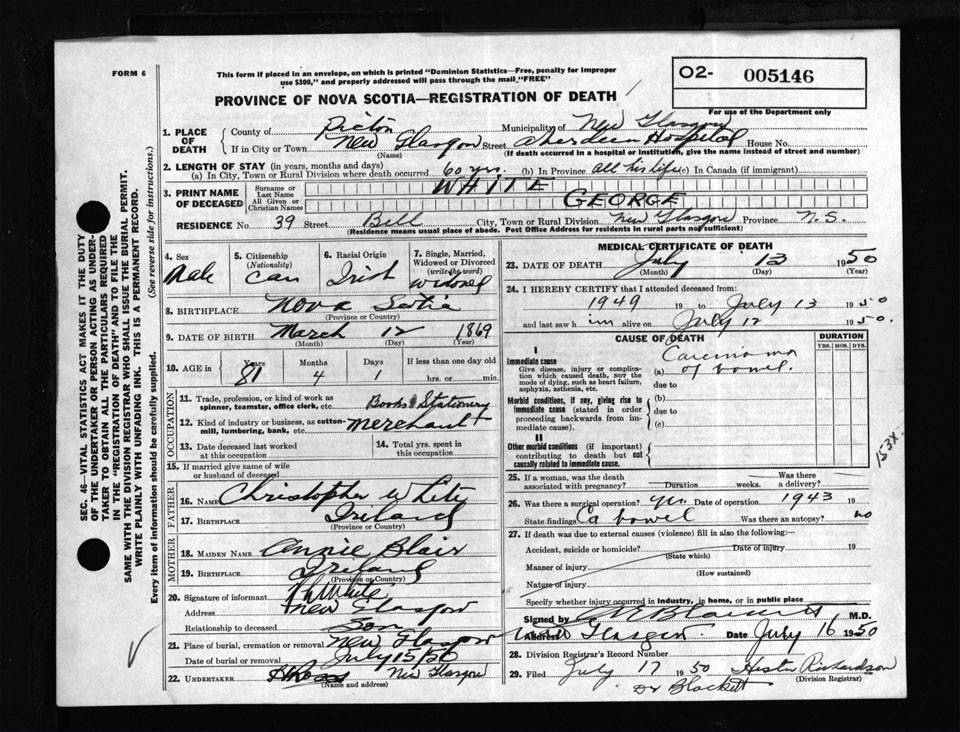 FORM 6
This form if placed in an envelope, on which is printed "Dominion Statistics—Free, penalty for improper
use $300," and properly addressed will pass through the mail "FREE"
O2- 005146
For use of the Department only
PROVINCE OF NOVA SCOTIA—REGISTRATION OF DEATH
1. PLACE OF DEATH
County of Pictou Municipality of New Glasgow
If in City or Town New Glasgow Street Aberdeen Hospital House No.
(Name) (If death occurred in a hospital or institution, give the name instead of street and number)
2. LENGTH OF STAY (in years, months and days)
(a) In City, Town or Rural Division where death occurred 60 yrs. (b) In Province All his life (c) In Canada (if immigrant)
3. PRINT NAME OF DECEASED
Surname or Last Name WHITE
All Given or Christian Names GEORGE
RESIDENCE No. 39 Street Bell City, Town or Rural Division New Glasgow Province N.S.
(Residence means usual place of abode. Post Office Address for residents in rural parts not sufficient)
4. Sex Male
5. Citizenship (Nationality) Can
6. Racial Origin Irish
7. Single, Married, Widowed or Divorced (write the word) Widowed
8. BIRTHPLACE Nova Scotia
(Province or Country)
9. DATE OF BIRTH March 12 1869
(Month) (Day) (Year)
10. AGE in Years 81 Months 4 Days 1 If less than one day old hrs. or min.
OCCUPATION
11. Trade, profession, or kind of work as spinner, teamster, office clerk, etc. Books Stationery
12. Kind of industry or business, as cotton-mill, lumbering, bank, etc. Merchant
13. Date deceased last worked at this occupation
14. Total yrs. spent in this occupation
15. If married give name of wife or husband of deceased
FATHER
16. NAME Christopher White
17. BIRTHPLACE Ireland
(Province or Country)
MOTHER
18. MAIDEN NAME Annie Blair
19. BIRTHPLACE Ireland
(Province or Country)
20. Signature of informant White
Address New Glasgow
Relationship to deceased Son
21. Place of burial, cremation or removal New Glasgow
Date of burial or removal July 15/50
22. UNDERTAKER New Glasgow
(Name and address)
MEDICAL CERTIFICATE OF DEATH
23. DATE OF DEATH July 13 1950
(Month) (Day) (Year)
24. I HEREBY CERTIFY that I attended deceased from:
1949 19 to July 13 1950
and last saw him alive on July 12 1950.
CAUSE OF DEATH
DURATION
YRS. MOS. DYS.
I
Immediate cause
Give disease, injury or complication which caused death, NOT the mode of dying, such as heart failure, asphyxia, asthenia, etc.
(a) Carcinoma of bowel.
due to
Morbid conditions, if any, giving rise to immediate cause (stated in order proceeding backwards from immediate cause).
(b)
due to
(c)
II
Other morbid conditions (if important) contributing to death but not causally related to immediate cause.
153X
25. If a woman, was the death associated with pregnancy? Duration weeks. Was there a delivery?
26. Was there a surgical operation? Yes Date of operation 1943 19
State findings Ca bowel Was there an autopsy? no
27. If death was due to external causes (violence) fill in also the following:
Accident, suicide or homicide? Date of injury 19
(State which)
Manner of injury
(How sustained)
Nature of injury
Specify whether injury occurred in industry, in home, or in public place
Signed by M.D.
Address Glasgow Date July 16 1950
28. Division Registrar's Record Number
29. Filed July 17 1950 Hester Richardson
(Division Registrar)
Dr Blackett
SEC. 46-VITAL STATISTICS ACT MAKES IT THE DUTY
OF THE UNDERTAKER OR PERSON ACTING AS UNDER-
TAKER TO OBTAIN ALL THE PARTICULARS REQUIRED
IN THE "REGISTRATION OF DEATH" AND TO FILE THE
SAME WITH THE DIVISION REGISTRAR WHO SHALL ISSUE THE BURIAL PERMIT.
WRITE PLAINLY WITH UNFADING INK. THIS IS A PERMANENT RECORD.
Every item of information should be carefully supplied. (See reverse side for instructions.)